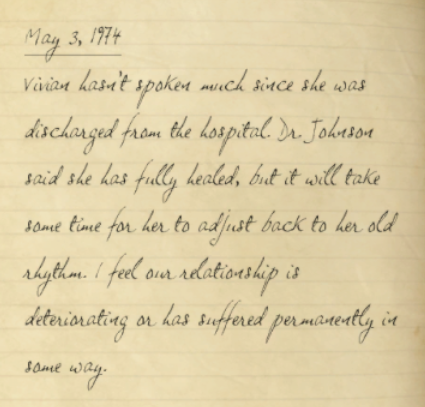 May 3, 1974
Vivian hasn't spoken much since she was
discharged from the hospital. Dr. Johnson
said she has fully healed, but it will take
some time for her to adjust back to her old
rhythm. I feel our relationship is
deteriorating or has suffered permanently in
some way.